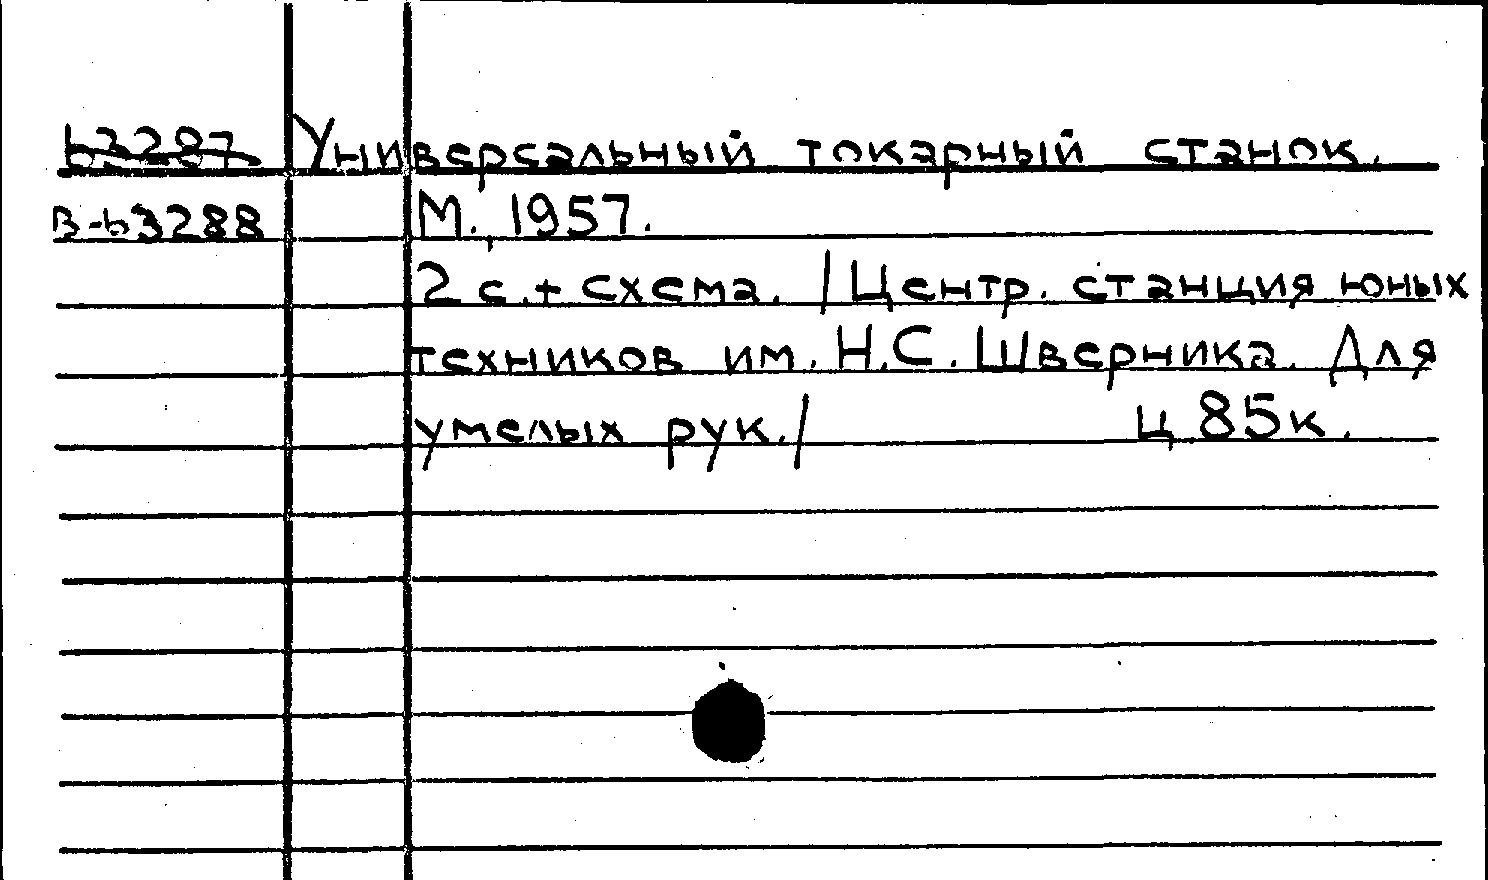 b3287 Универсальный токарный станок.
В-b3288 М., 1957.
2 с.+ схема. /Центр. станция юных
техников им. Н.С. Шверника. Для
умелых рук./ Ц 85к.